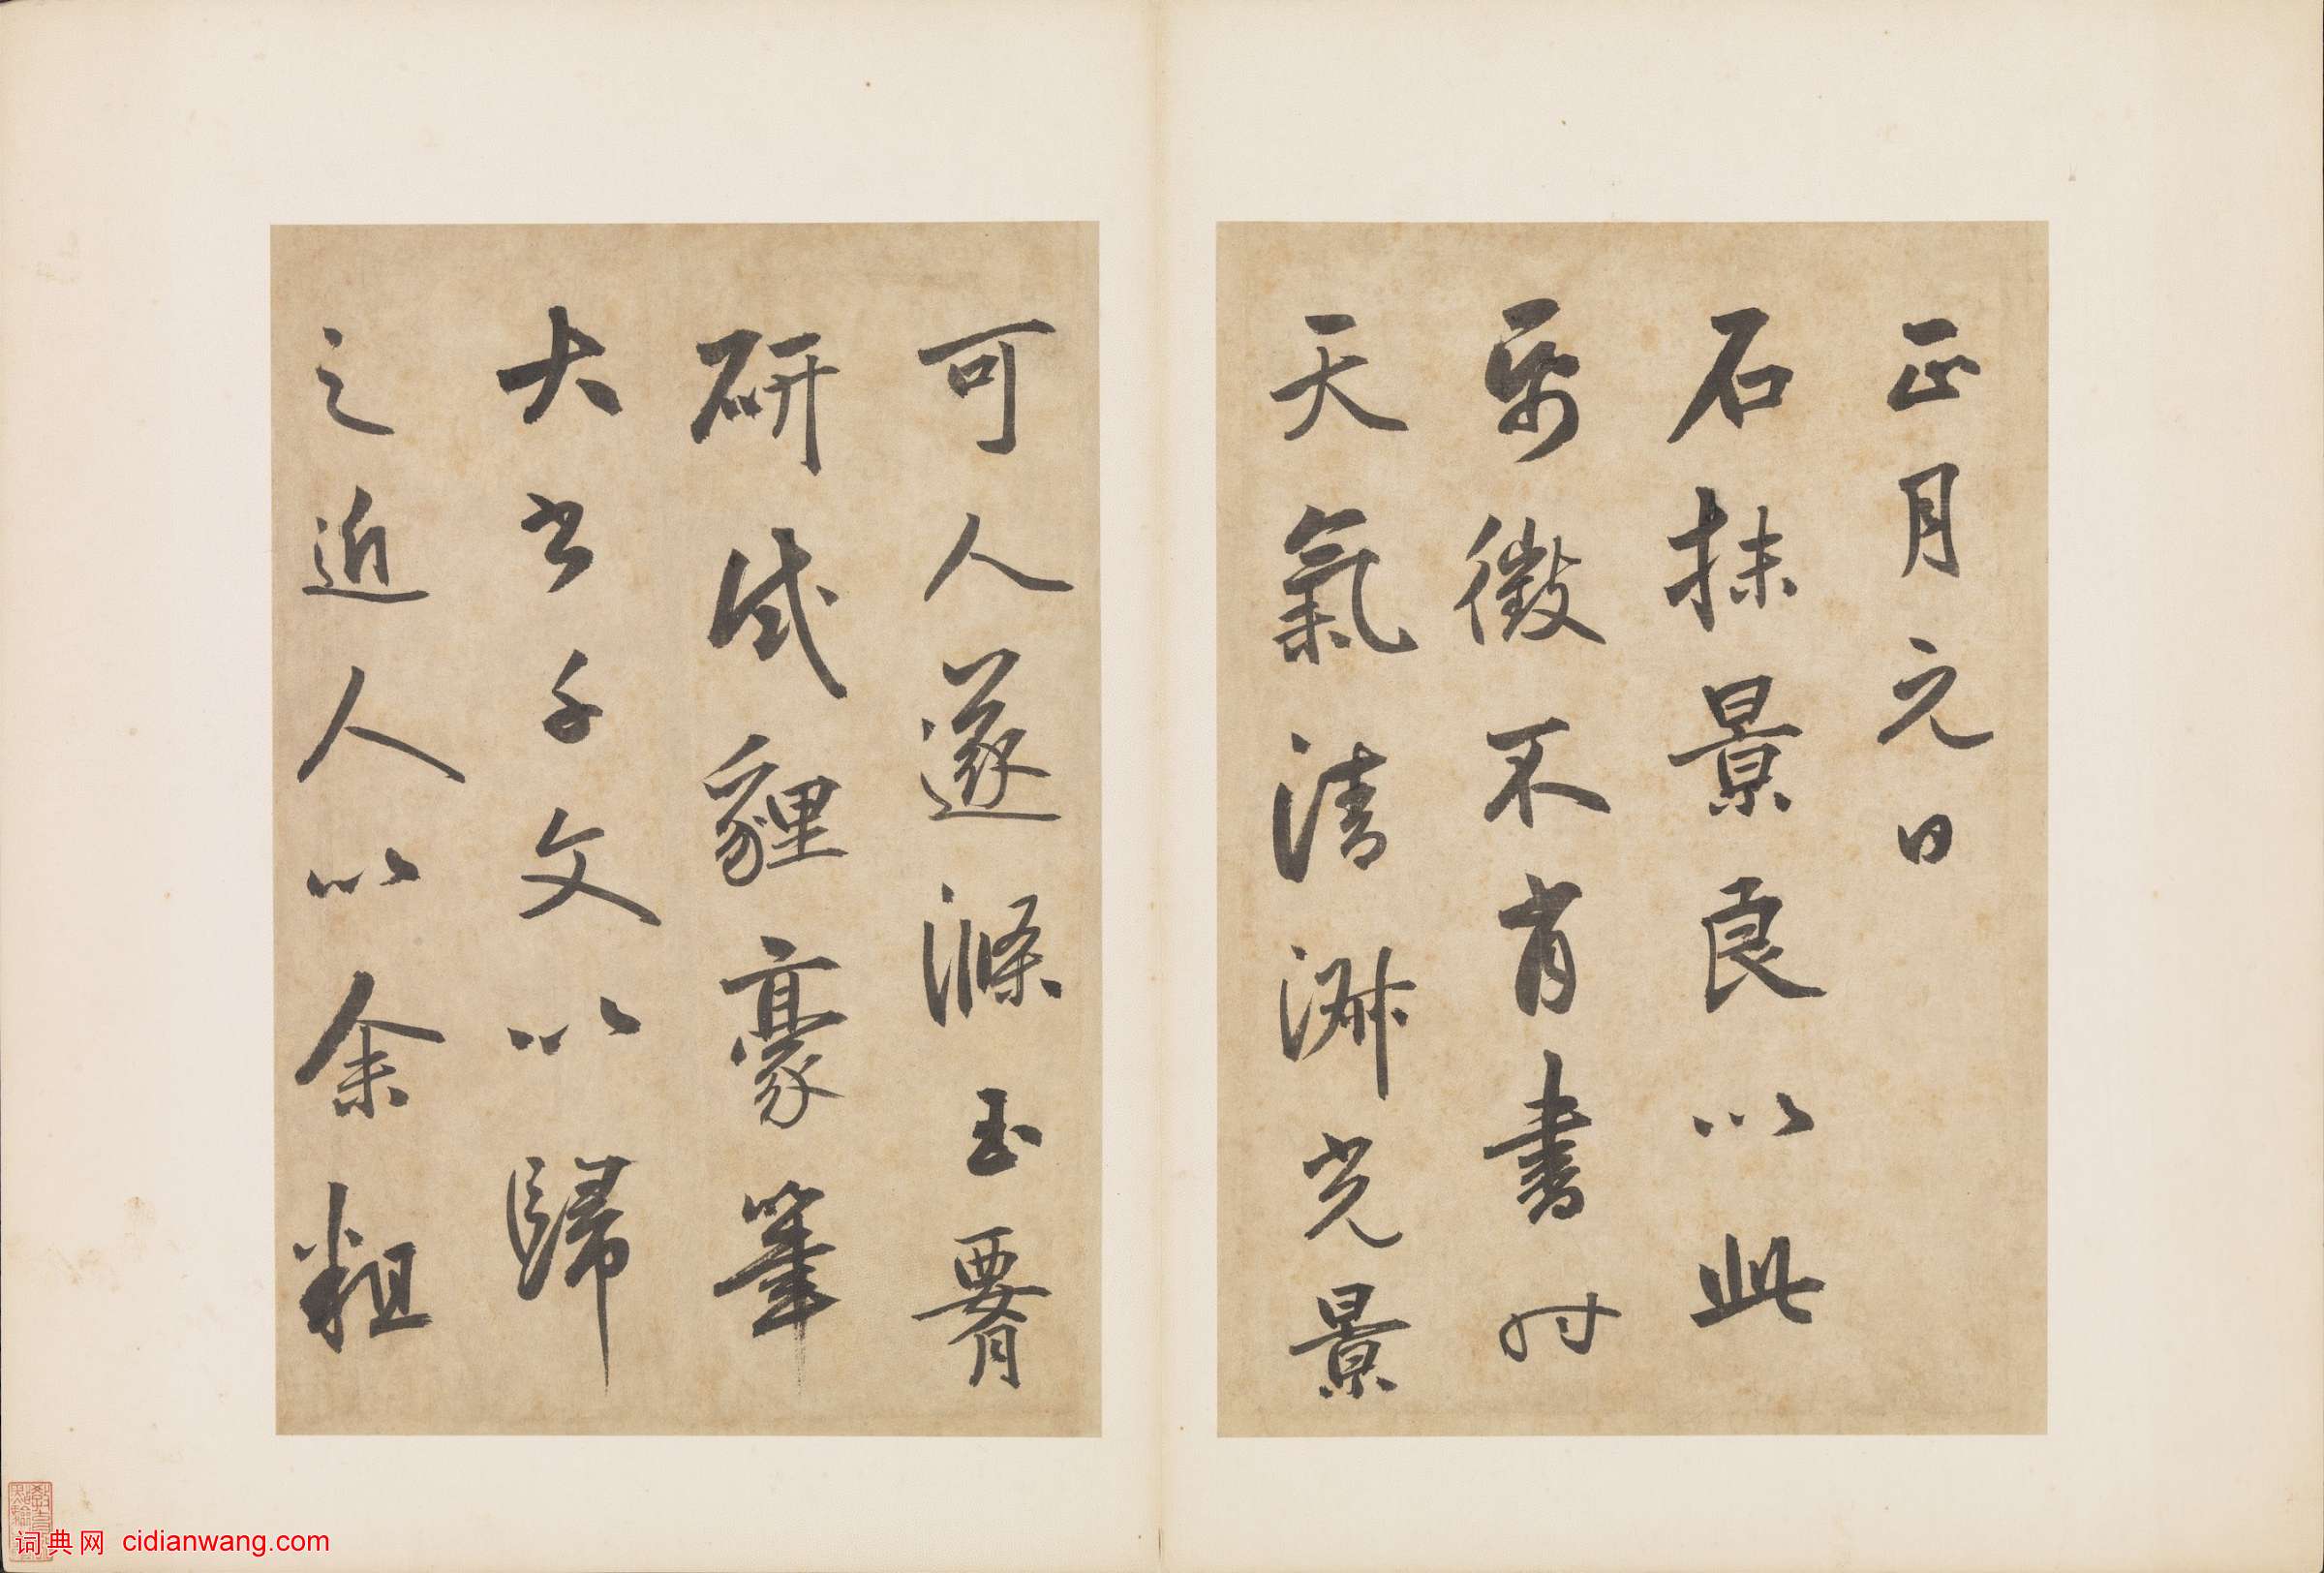 正月元日
石抹景良以此
帋徵不肖書时
天氣清淑光景
可人遂滌玉腰
研試貍豪筆
大书千文以歸
之近人以余粗
词典网 cidianwang.com